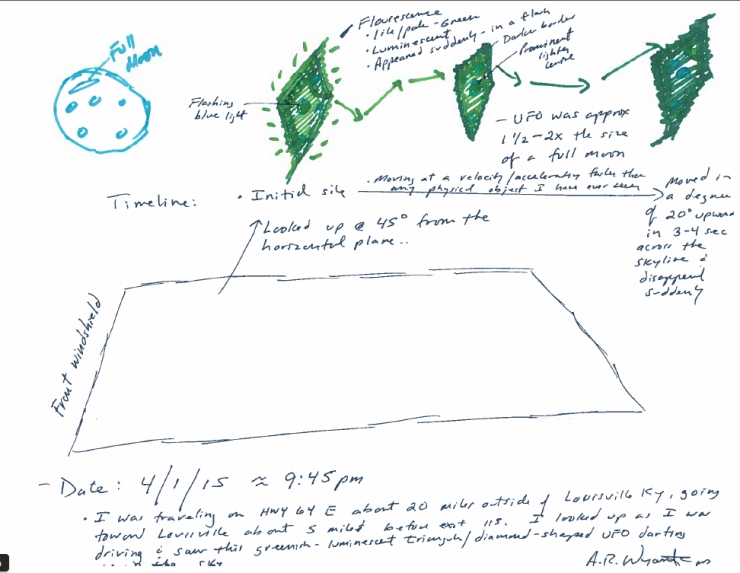 Full
Moon
Flourescence
• lite/pale-Green
• Luminescent
• Appeared suddenly - in a flash
Darker border
Prominent
lighter
centre
Flashing
blue light
- UFO was approx
1 1/2 - 2x the size
of a full moon
Timeline:
• Initial site
• Moving at a velocity/accelerating faster than
any physical object I have ever seen
Moved in
a degree
of 20° upward
in 3-4 sec
across the
skyline &
disappeared
suddenly
Looked up @ 45° from the
horizontal plane..
Front windshield
- Date: 4/1/15 ≈ 9:45pm
• I was traveling on HWY 64 E about 20 miles outside of Louisville Ky, going
toward Louisville about 5 miles before exit 115. I looked up as I was
driving & saw this greenish-luminescent Triangular/diamond-shaped UFO darting
the sky
A.R.